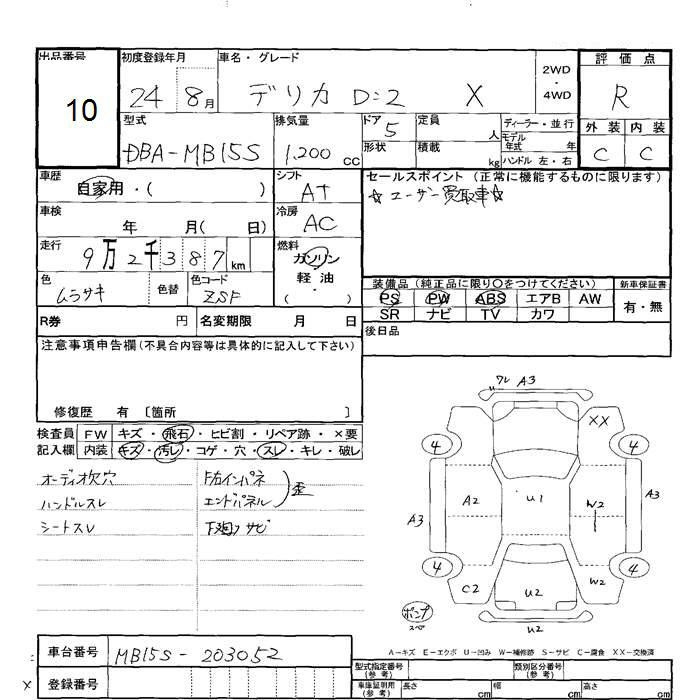 出品番号
10
初度登録年月
24 8月
車名・グレード
デリカ D:2 X
2WD
・
4WD
評価点
R
外装 内装
C C
型式
DBA-MB15S
排気量
1.200 cc
ドア 5
形状
定員 人
積載 kg
ディーラー・並行
モデル
年式 年
ハンドル 左・右
車歴
自家用・( )
シフト
AT
セールスポイント (正常に機能するものに限ります)
☆ユーザー買取車☆
車検
年 月( 日)
冷房
AC
走行
9万2千387km
燃料
ガソリン
軽油
・
( )
色
ムラサキ
色替
色コード
ZSF
装備品(純正品に限り○をつけてください) 新車保証書
PS PW ABS エアB AW
SR ナビ TV カワ
有・無
R券 円 名変期限 月 日
後日品
注意事項申告欄(不具合内容等は具体的に記入して下さい)
修復歴 有 〔箇所 〕
検査員 FW キズ・飛石・ヒビ割・リペア跡・×要
記入欄 内装 キズ・汚レ・コゲ・穴・スレ・キレ・破レ
オーディオ欠穴
ハンドルスレ
シートスレ
F右インパネ
エンドパネル
歪
下廻り サビ
ワレ A3
XX
4 4
A2 U1 W2
A3 A3
4 4
C2 U2 W2
U2
ポンプ
スペ
A-キズ E-エクボ U-凹み W-補修跡 S-サビ C-腐食 XX-交換済
車台番号 MB15S-203052
登録番号
X
型式指定番号
(参考)
類別区分番号
(参考)
車庫証明用
(参考)
長さ cm 幅 cm 高さ cm